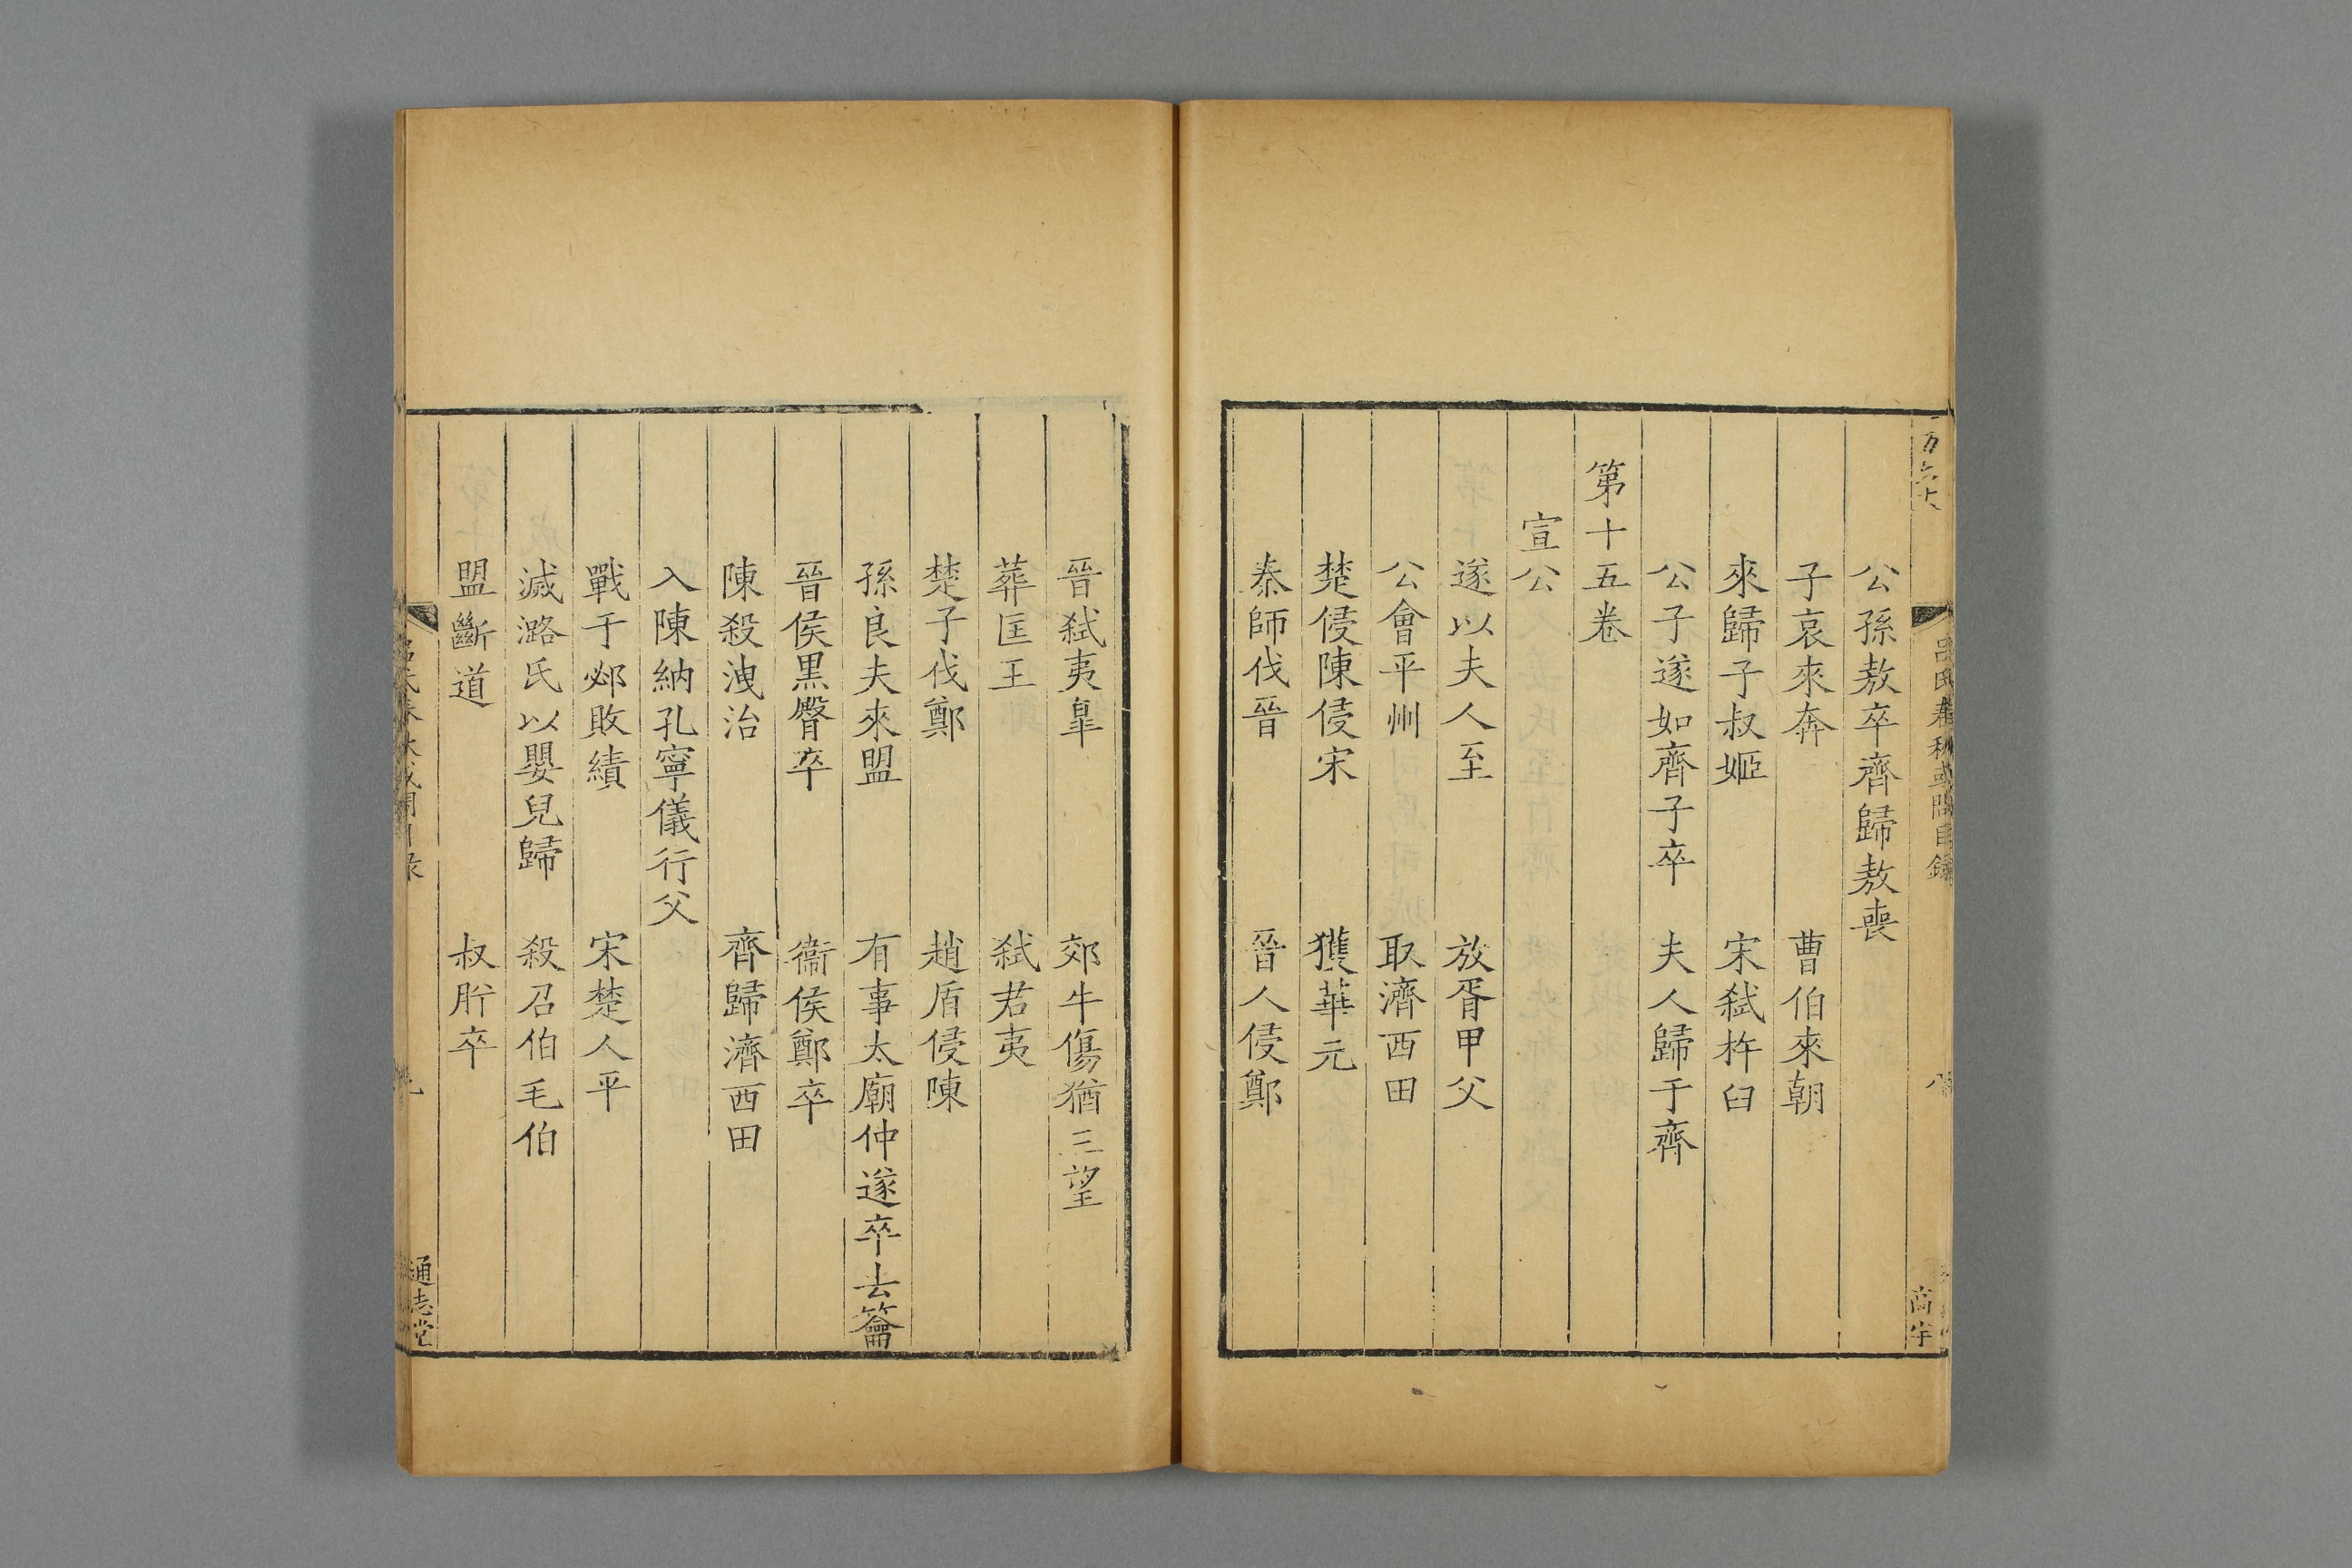 公孫敖卒齊歸敖喪
子哀來奔　曹伯來朝
來歸子叔姬　宋弒杵臼
公子遂如齊子卒　夫人歸于齊
第十五卷
宣公
遂以夫人至　放胥甲父
公會平州　取濟西田
楚侵陳侵宋　獲華元
秦師伐晉　晉人侵鄭
呂氏春秋或問目錄　八
晉弒夷皐　郊牛傷猶三望
葬匡王　弒君夷
楚子伐鄭　趙盾侵陳
孫良夫來盟　有事太廟仲遂卒去籥
晉侯黑臀卒　衞侯鄭卒
陳殺洩治　齊歸濟西田
入陳納孔寧儀行父
戰于邲敗績　宋楚人平
滅潞氏以嬰兒歸　殺召伯毛伯
盟斷道　叔肸卒
通志堂